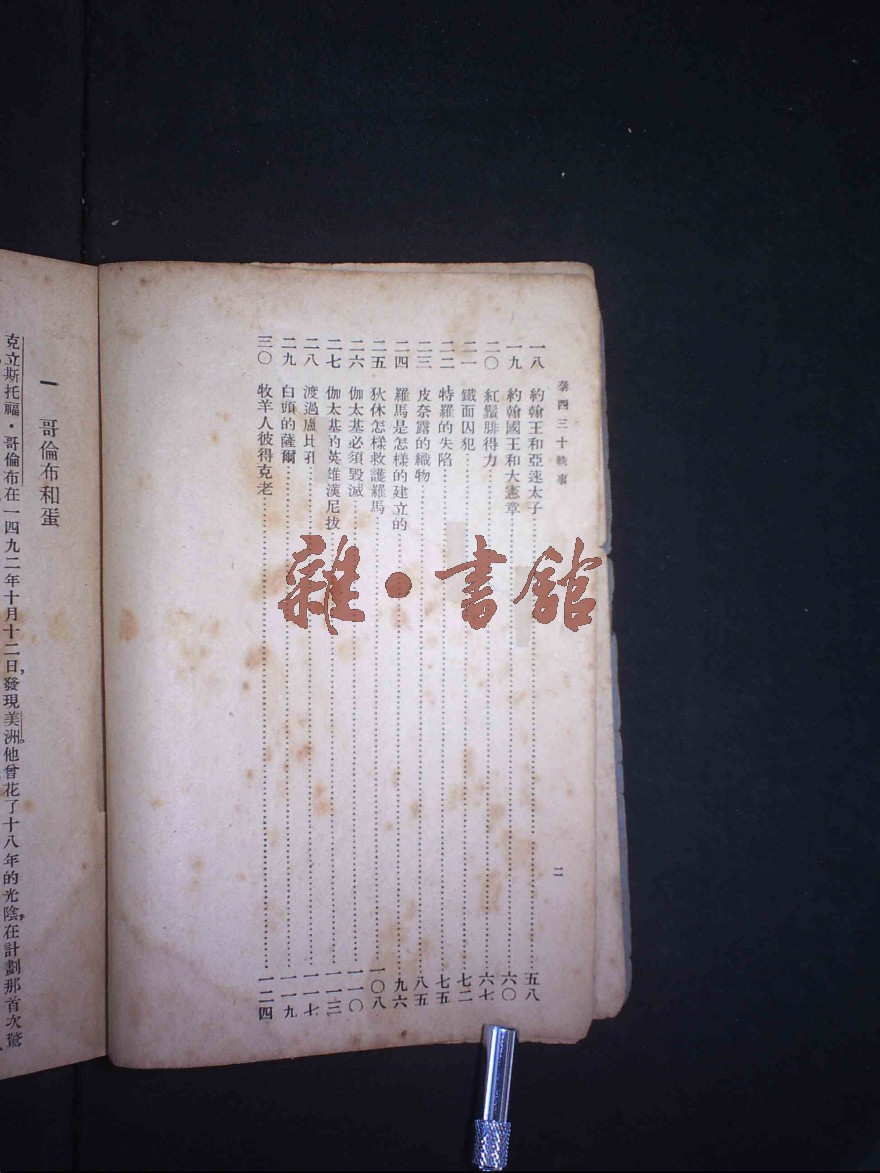 泰四三十軼事
一八　約翰王和亞速太子……五八
一九　約翰國王和大憲章……六〇
二〇　紅鬚腓得力……六七
二一　鐵面囚犯……七二
二二　特羅的失陷……七五
二三　皮奈露的織物……八五
二四　羅馬是怎樣的建立的……九六
二五　狄休怎樣救護羅馬……一〇八
二六　伽太基必須毀滅……一一〇
二七　伽太基的英雄漢尼拔……一一三
二八　渡過盧比孔……一一七
二九　白頭的薩爾……一一九
三〇　牧羊人彼得克老……一二四
二
一　哥倫布和蛋
克立斯托福·哥倫布在一四九二年十月十二日發現美洲。他曾花了十八年的光陰，在計劃那首次驚
雜·書館